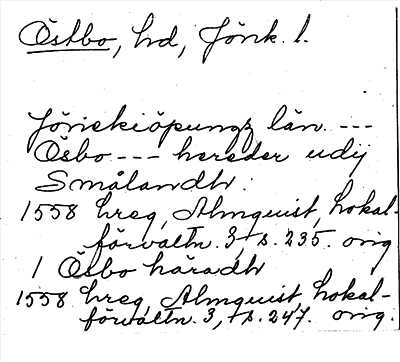 Östbo, hd, Jönk. l.
Jönekiöpungz län ---
Ösbo --- hereder udij
Smålandh:
1558 hreg, Almquist, Lokal-
förvaltn. 3, s. 235. orig
1 Ösbo häradh
1558 hreg, Almquist, Lokal-
förvaltn. 3, s. 247. orig.